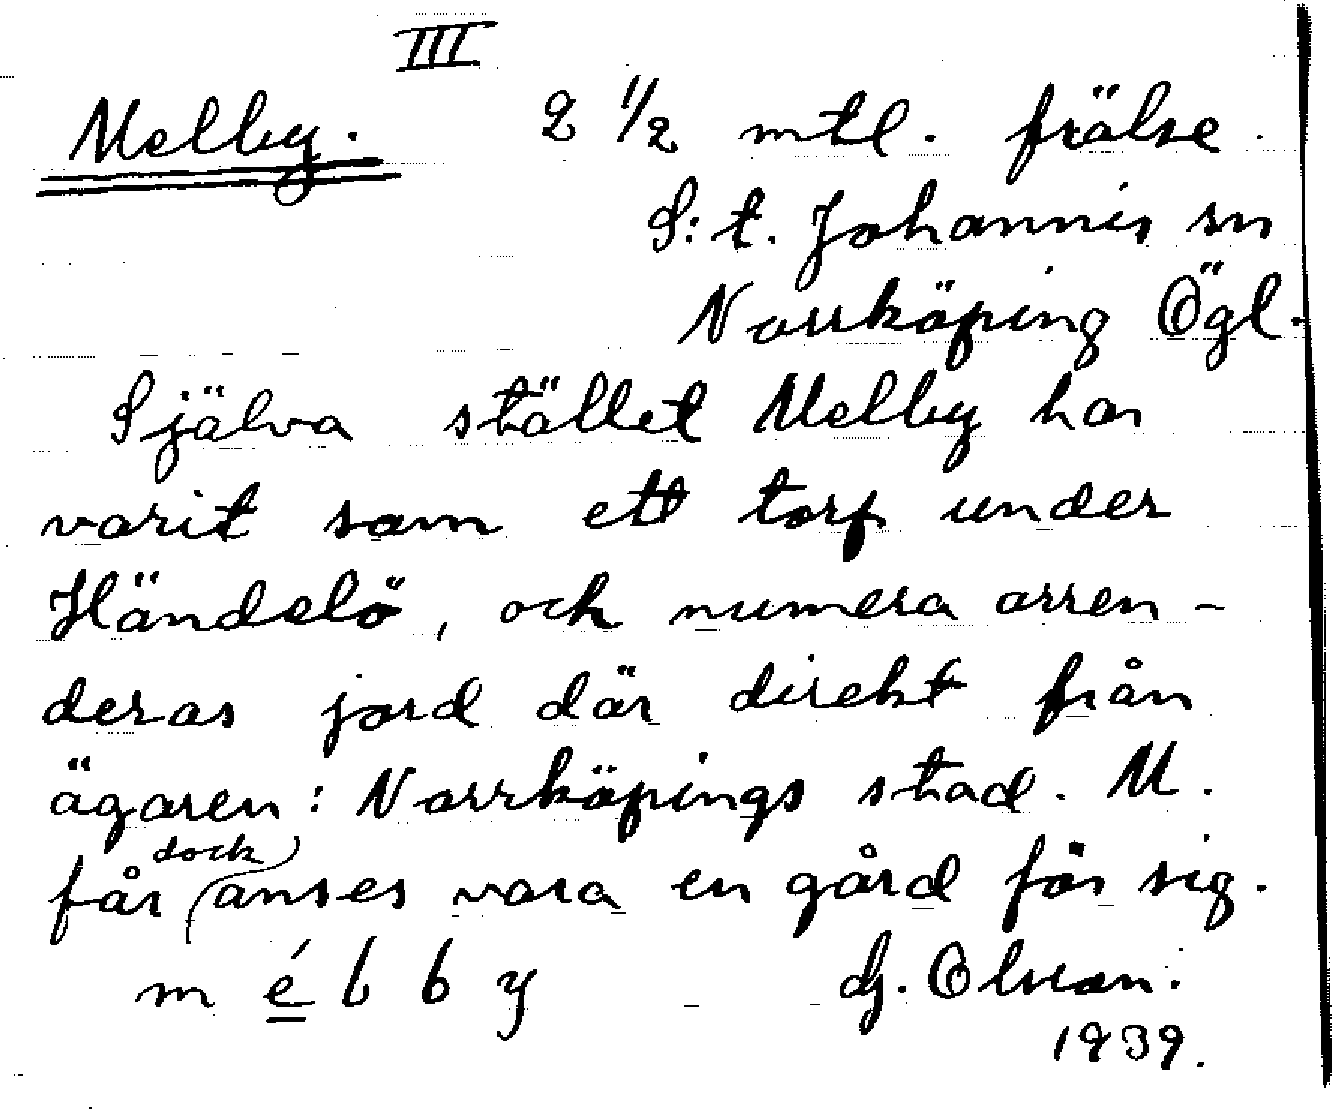 III
Melby. 2 1/2 mtl. frälse.
S:t. Johannis sn
Norrköping Ögl.
Själva stället Melby har
varit som ett torp under
Händelö, och numera arren-
deras jord där direkt från
ägaren: Norrköpings stad. M.
får dock anses vara en gård för sig.
m é b b y
1939.